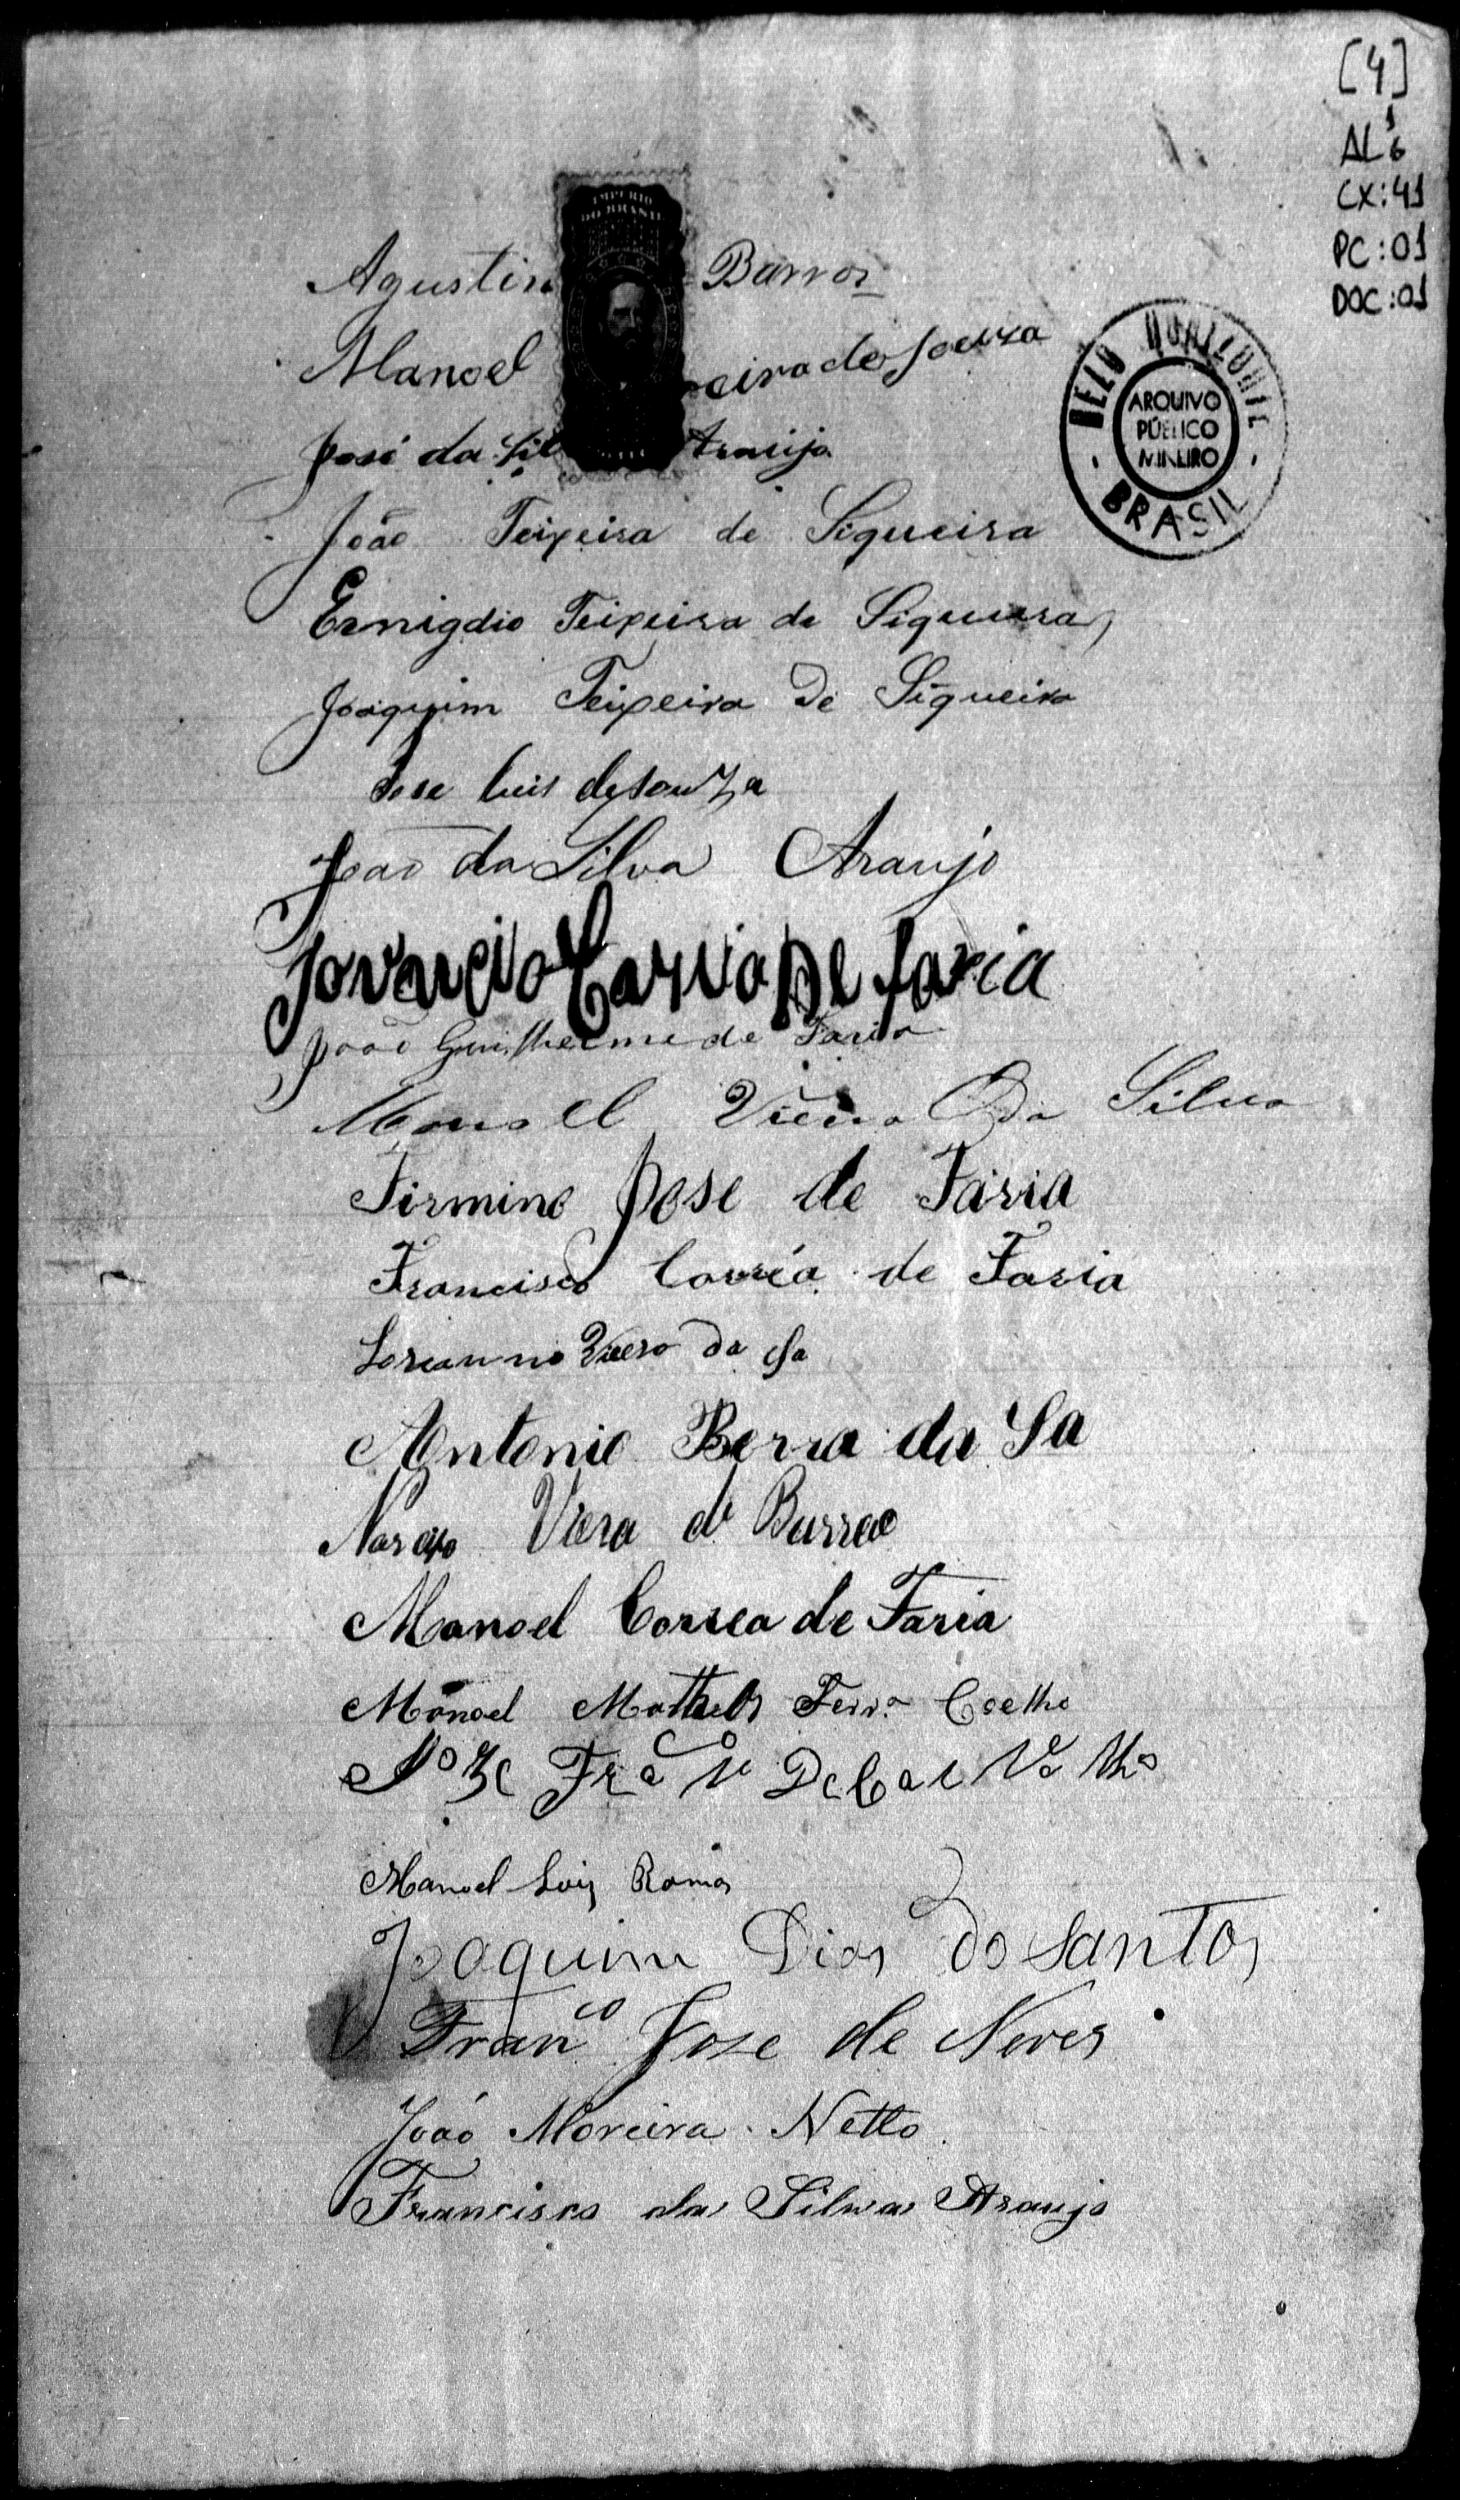 [4]
AL 1 6
CX:41
PC:01
DOC:01
IMPERIO
DO BRASIL
BELO HORIZONTE
ARQUIVO
PÚBLICO
MINEIRO
BRASIL
Agustin Barros
Manoel eira de Souza
José da Sil Araujo
João Teixeira de Siqueira
Ermigdio Teixeira de Siqueira
Joaquim Teixeira De Siqueira
Jose Luis de souza
João da Silva Araujo
De faria
João Guilherme de Faria
Manoel Vieira Da Silva
Firmino Jose de Faria
Francisco Corrêa de Faria
da Sa
Antonio Berra da Sa
Viera d
Manoel Correa de Faria
Manoel Matheus Ferra Coelho
Manoel Luiz Ramos
Joaquim Dias do Santos
Franco Jose de Neves
João Moreira Netto
Francisco da Silva Araujo